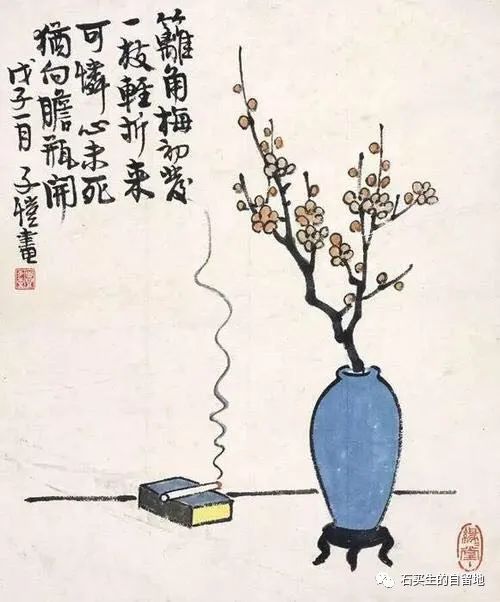 籬角梅初發
一枝輕折來
可憐心未死
猶向膽瓶開
戊子一月 子愷畫
緣堂
石买生的自留地